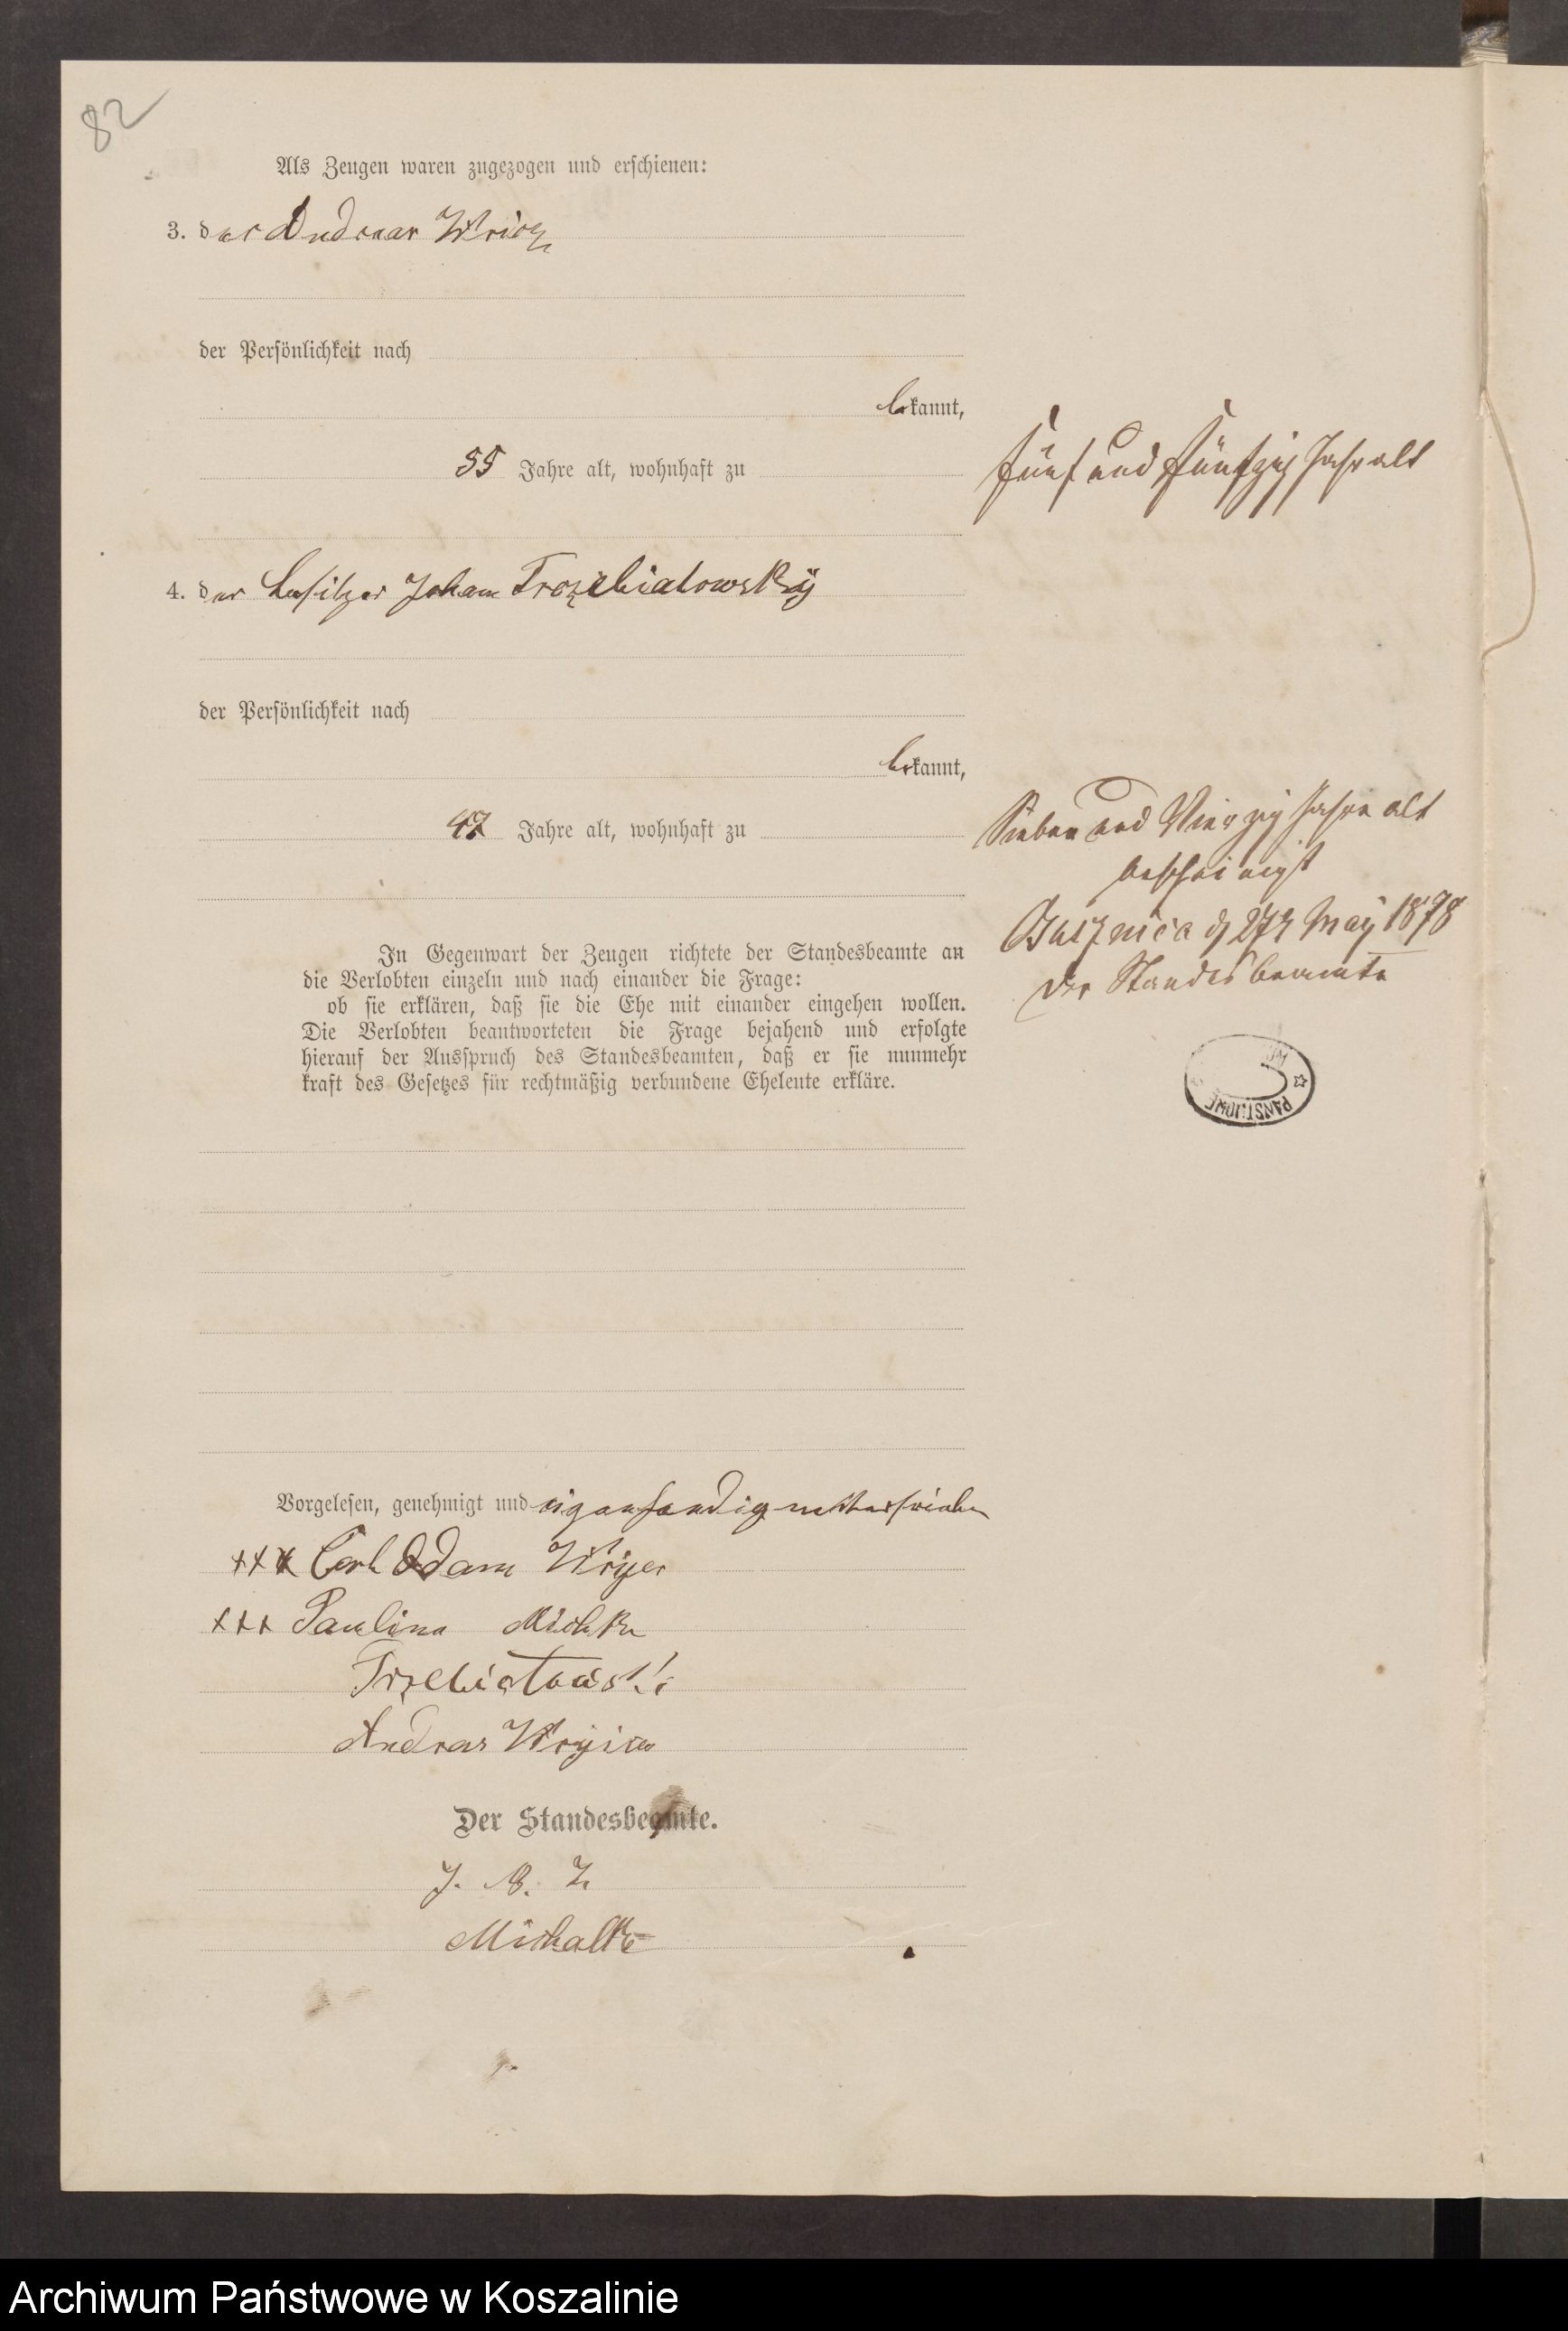 82
Als Zeugen waren zugezogen und erschienen:
3. der Andreas
der Persönlichkeit nach
bekannt,
55 Jahre alt, wohnhaft zu
fünf und fünfzig Jahr alt
4. der Besitzer Johann Trozebiatowsky
der Persönlichkeit nach
bekannt,
47 Jahre alt, wohnhaft zu
Sieben und Vierzig Jahre alt
bescheinigt
d 27t May 1878
Der Standesbeamte
In Gegenwart der Zeugen richtete der Standesbeamte an
die Verlobten einzeln und nach einander die Frage:
ob sie erklären, daß sie die Ehe mit einander eingehen wollen.
Die Verlobten beantworteten die Frage bejahend und erfolgte
hierauf der Ausspruch des Standesbeamten, daß er sie nunmehr
kraft des Gesetzes für rechtmäßig verbundene Eheleute erkläre.
PAŃSTWOWE
Vorgelesen, genehmigt und eigenhandig
xxx Carl Adam
xxx Paulina
Trzebiatowski
Andreas
Der Standesbeamte.
Michalke
Archiwum Państwowe w Koszalinie